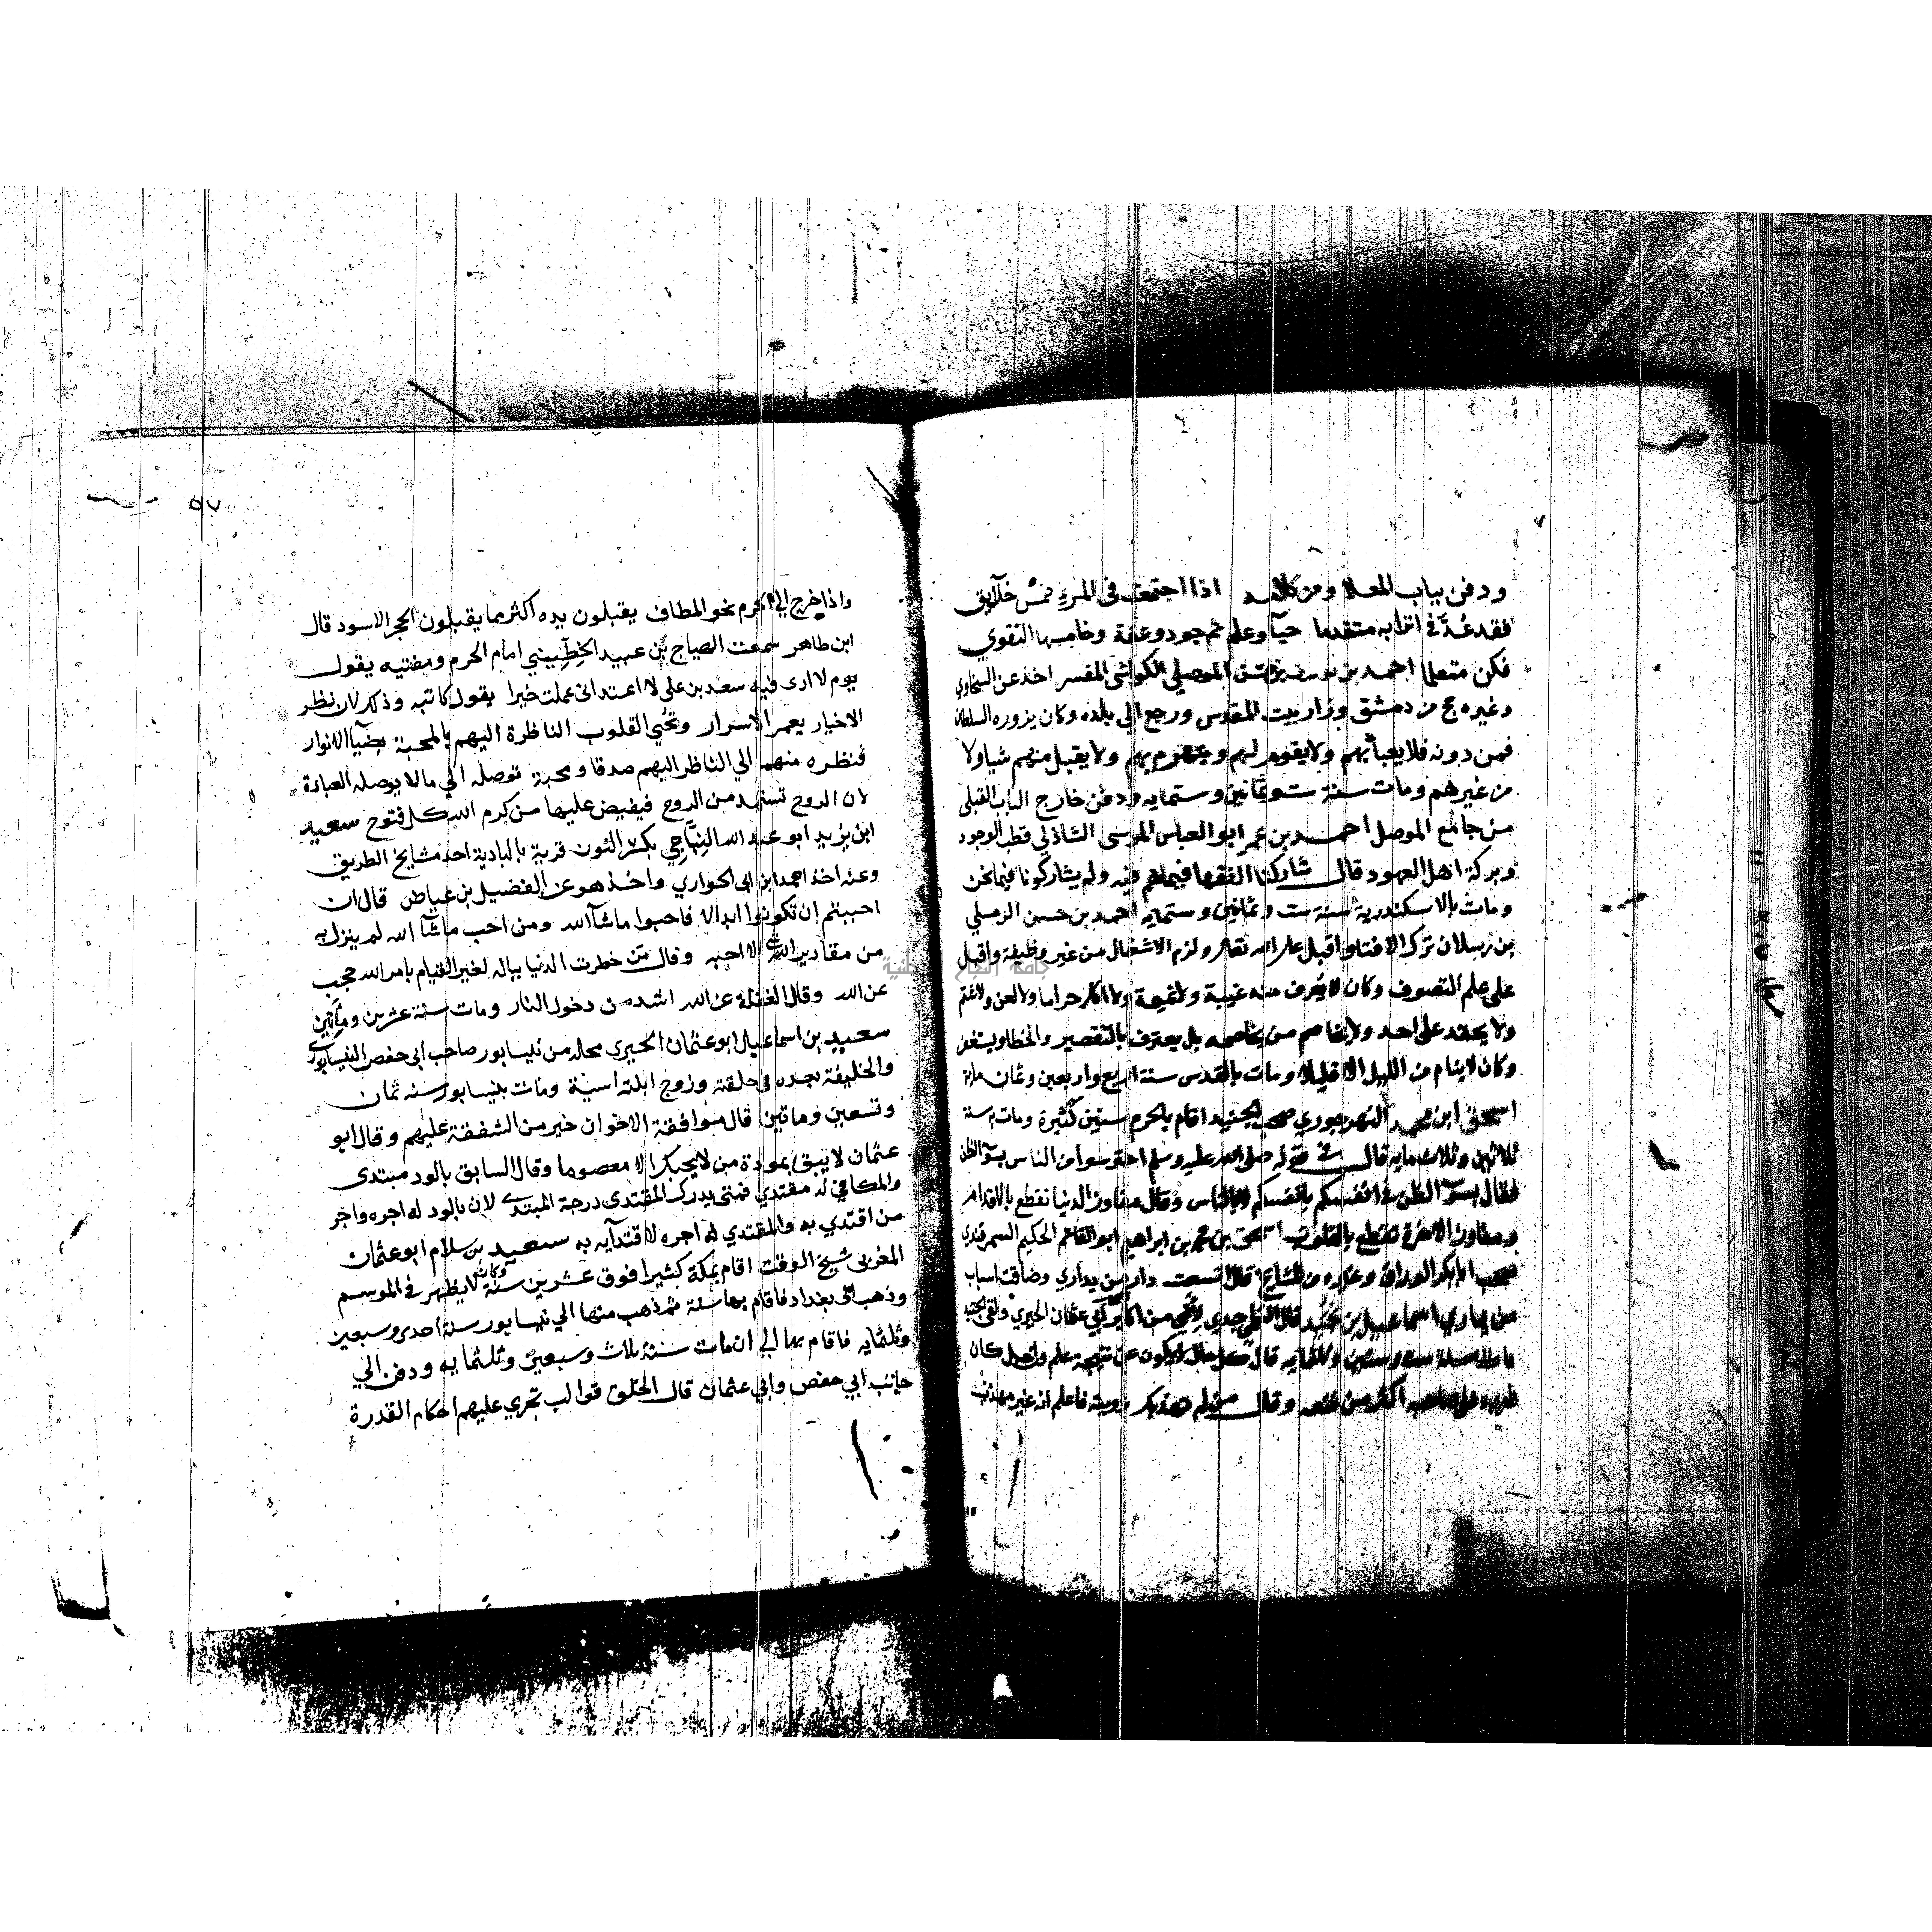 ودفن بباب المعلا ومن كلامه اذا اجتمعت في المرء خمس خلايق
فقد عُدّ في اترابه متقدما حيآ وعلم ثم جود وعفة وخامسها التقوي
فكن متعلما احمد بن يوسف بن الموصلي الكواشي المفسر اخذ عن السخاوي
وغيره حج من دمشق وزار بيت المقدس ورجع الي بلده وكان يزوره السلطان
فمن دونه فلا يعبأ بهم ولا يقوم لهم ولا يقبل منهم شيا ولا
من غيرهم ومات سنة ست وثمانين وستمايه ودفن خارج الباب القبلي
من جامع الموصل احمد بن عمر ابو العباس المرسي الشاذلي قطب الوجود
وبركة اهل العهود قال شاركنا الفقها فيما هم فيه ولم يشاركونا فيما نحن
ومات بالاسكندرية سنة ست وثمانين وستمايه احمد بن حسن الرملي
بن رسلان ترك الافتا واقبل علي الله تعالى ولزم الاشغال من غير وظيفة واقبل
على علم التصوف وكان لا يُعرف منه غيبة ولا نميمة ولا اكل حراما ولا لعن ولا شتم
ولا يحقد على احد ولا يخاصم من يخاصمه بل يعترف بالتقصير والخطا ويستغفر
وكان لا ينام من الليل الا قليلا ومات بالقدس سنة اربع واربعين وثمان ماية
اسحق ابن محمد النهرجوري صحب الجنيد اقام بالحرم سنين كثيرة ومات به سنة
ثلاثين وثلاث مايه قال في قوله صلى الله عليه وسلم احترسوا من الناس بسوء الظن
فقال بسوء الظن في انفسكم بانفسكم لا بالناس وقال مفاوز الدنيا تقطع بالاقدام
ومفاوز الاخرة تقطع بالقلوب اسحق بن محمد بن ابراهيم ابو القاسم الحكيم السمرقندي
صحب ابا بكر الوراق وغيره من المشايخ
اسماعيل بن نجيد جدي لامي من اكابر ابي عثمان الحيري ولقي الجنيد
مات سنة ست وستين وثلثمايه قال كل حال لا يكون عن نتيجة علم وان جل كان
ضرره على صاحبه اكثر من نفعه وقال من لم تهذبك رويته فاعلم انه غير مهذب
٥٧
واذا خرج الي الحرم نحو المطاف يقبلون يده اكثر مما يقبلون الحجر الاسود قال
ابن طاهر سمعت الهياج بن عبيد الخطيبني امام الحرم ومفتيه يقول
يوم لا ارى فيه سعد بن علي لا اعتد اني عملت خيرا يقول كاتبه وذلك لان نظر
الاخيار يعمر الاسرار ويحيي القلوب الناظرة اليهم بالمحبة بضيا الانوار
فنظره منهم الي الناظر اليهم صدقا ومحبة توصله الي مالا يوصله العبادة
لان الروح تستمد من الروح فيفيض عليها من كرم الله كل فتوح سعيد
ابن يزيد ابو عبد الله النِباجي بكسر النون قرية بالبادية احد مشايخ الطريق
وعنه اخذ احمد ابن ابي الحواري واخذ هو عن الفضيل بن عياض قال ان
احببتم ان تكونوا ابدالا فاحبوا ما شآ الله ومن احب ما شآ الله لم ينزل به
من مقادير الله شي الا احبه وقال من خطرت الدنيا بباله لغير القيام بامر الله حجب
عن الله وقال الغفلة عن الله اشد من دخول النار ومات سنة عشرين ومأتين
سعيد بن اسماعيل ابو عثمان الحيري محله من نيسابور صاحب ابي حفص النيسابوري
والخليفة بعده في حلقته وزوج ابنته اسنة ومات بنيسابور سنه ثمان
وتسعين وماتين قال موافقة الاخوان خير من الشفقة عليهم وقال ابو
عثمان لا يثق بمودة من لا يحبك الا معصوما وقال السابق بالود مبتدى
والمكافي له مقتدي فمتى يدرك المقتدى درجة المبتدي لان بالود له اجره واجر
من اقتدي به والمقتدي له اجره لاقتدآيه به سعيد بن سلام ابو عثمان
المغربي شيخ الوقت اقام بمكة كثيرا فوق عشرين سنة وكان لا يظهر في الموسم
وذهب الى بغداد فاقام بها سنة ثم ذهب منها الي نيسابور سنة احدى وسبعين
وثلثمايه فاقام بها الي ان مات سنة ثلاث وسبعين وثلثمايه ودفن الي
جانب ابي حفص وابي عثمان قال الخلق قوالب تجري عليهم احكام القدرة